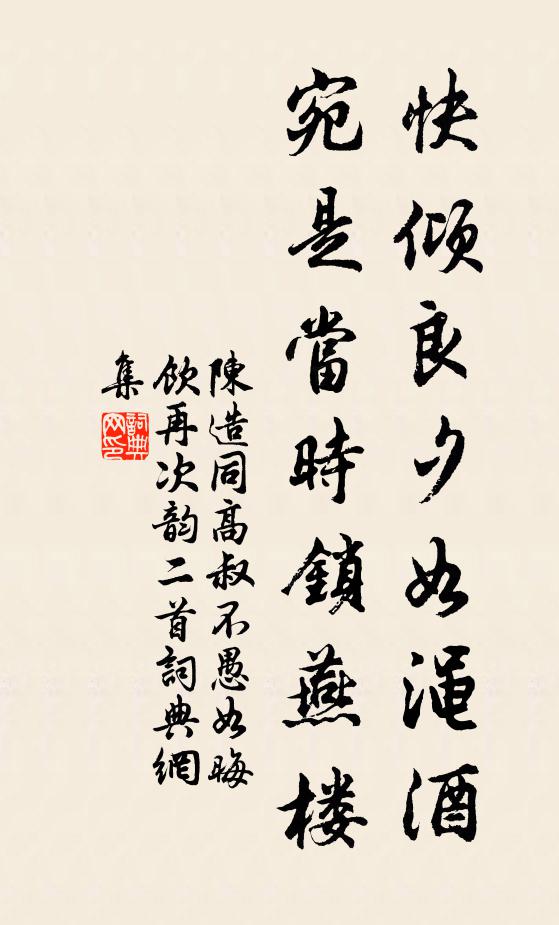 快傾良夕如渑酒
宛是當時鎖燕楼
陳造同高叔不愚如晦
飲再次韵二首詞典網
集
詞典
网印